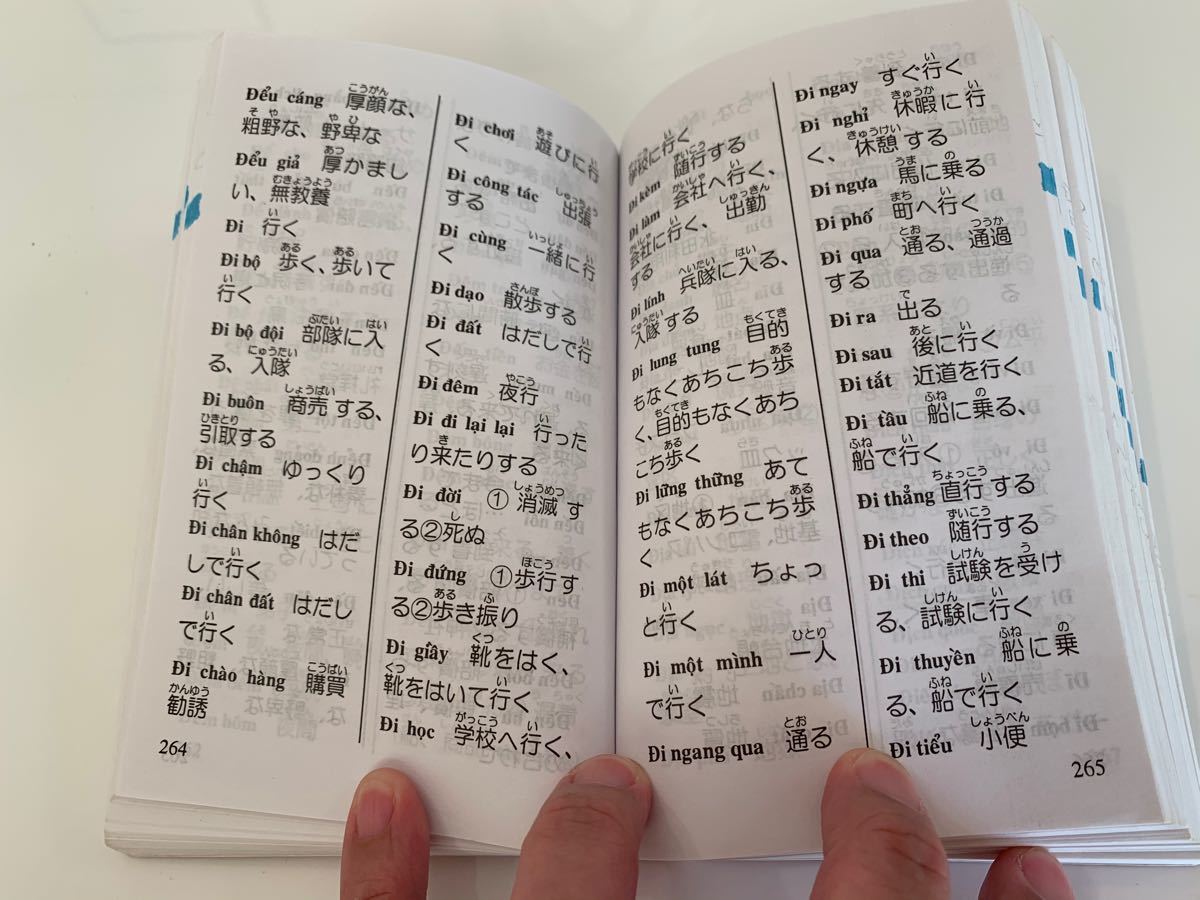 Đểu cáng 厚顔な、
粗野な、野卑な
Đểu giả 厚かまし
い、無教養
Đi 行く
Đi bộ 歩く、歩いて
行く
Đi bộ đội 部隊に入
る、入隊
Đi buôn 商売する、
引取する
Đi chậm ゆっくり
行く
Đi chân không はだ
しで行く
Đi chân đất はだし
で行く
Đi chào hàng 購買
勧誘
264
Đi chơi 遊びに行
く
Đi công tác 出張
する
Đi cùng 一緒に行
く
Đi dạo 散歩する
Đi đất はだしで行
く
Đi đêm 夜行
Đi đi lại lại 行った
り来たりする
Đi đời ①消滅す
る②死ぬ
Đi đứng ①歩行す
る②歩き振り
Đi giầy 靴をはく、
靴をはいて行く
Đi học 学校へ行く、
学校に行く
Đi kèm 随行する
Đi làm 会社へ行く、
会社に行く、出勤
する
Đi lính 兵隊に入る、
入隊する
Đi lung tung 目的
もなくあちこち歩
く、目的もなくあち
こち歩く
Đi lững thững あて
もなくあちこち歩
く
Đi một lát ちょっ
と行く
Đi một mình 一人
で行く
Đi ngang qua 通る
Đi ngay すぐ行く
Đi nghỉ 休暇に行
く、休憩する
Đi ngựa 馬に乗る
Đi phố 町へ行く
Đi qua 通る、通過
する
Đi ra 出る
Đi sau 後に行く
Đi tắt 近道を行く
Đi tầu 船に乗る、
船で行く
Đi thẳng 直行する
Đi theo 随行する
Đi thi 試験を受け
る、試験に行く
Đi thuyền 船に乗
る、船で行く
Đi tiểu 小便
265